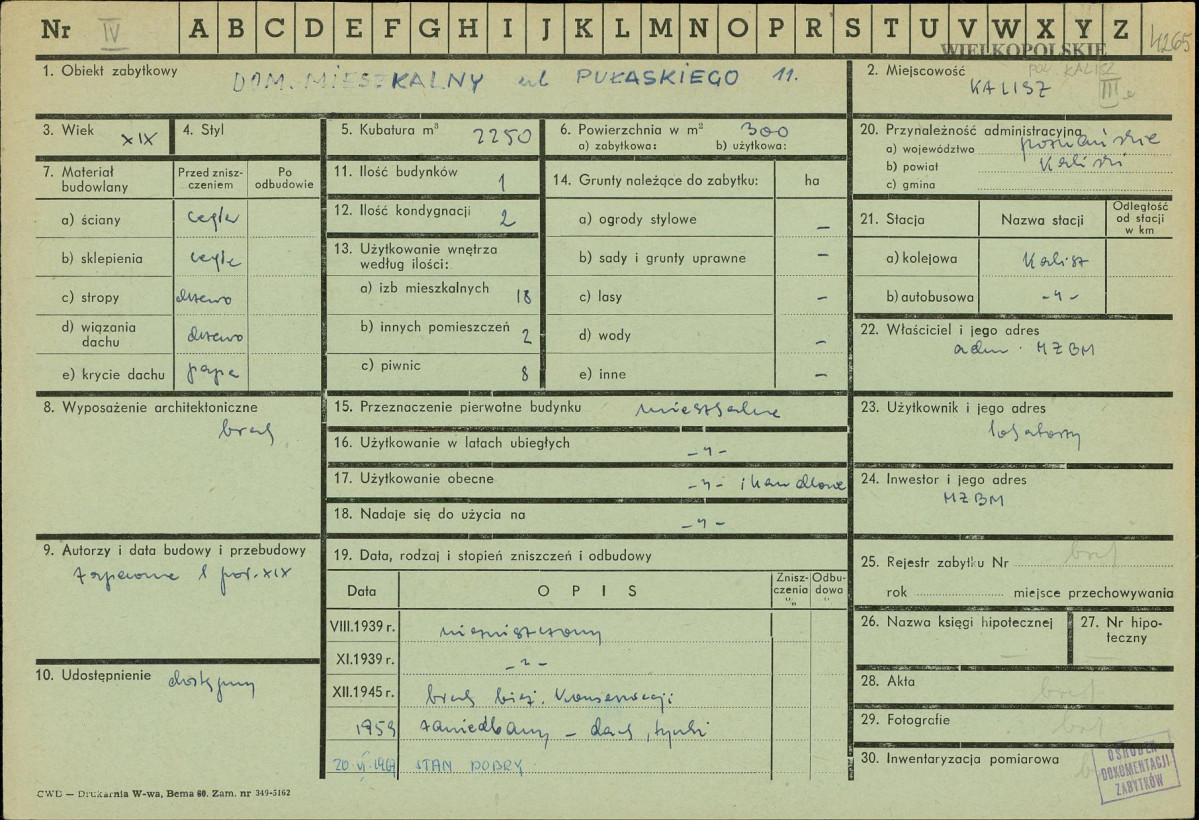 Nr IV A B C D E F G H I J K L M N O P R S T U V W X Y Z 4265
WIELKOPOLSKIE
1. Obiekt zabytkowy DOM. MIESZKALNY ul PUŁASKIEGO 11.
2. Miejscowość pow. KALISZ
KALISZ III
3. Wiek XIX
4. Styl
5. Kubatura m³ 2250
6. Powierzchnia w m² 300
a) zabytkowa: b) użytkowa:
20. Przynależność administracyjna
a) województwo poznańskie
b) powiat Kaliski
c) gmina
7. Materiał budowlany
Przed zniszczeniem
Po odbudowie
a) ściany cegła
b) sklepienia cegła
c) stropy drzewo
d) wiązania dachu drzewo
e) krycie dachu papa
11. Ilość budynków 1
12. Ilość kondygnacji 2
13. Użytkowanie wnętrza
według ilości:
a) izb mieszkalnych 18
b) innych pomieszczeń 2
c) piwnic 8
14. Grunty należące do zabytku: ha
a) ogrody stylowe –
b) sady i grunty uprawne –
c) lasy –
d) wody –
e) inne –
21. Stacja Nazwa stacji Odległość od stacji w km
a) kolejowa Kalisz
b) autobusowa -"-
22. Właściciel i jego adres
adm. MZBM
8. Wyposażenie architektoniczne
brak
15. Przeznaczenie pierwotne budynku mieszkalne
16. Użytkowanie w latach ubiegłych -"-
17. Użytkowanie obecne -"- i handlowe
18. Nadaje się do użycia na -"-
23. Użytkownik i jego adres
lokatorzy
24. Inwestor i jego adres
MZBM
9. Autorzy i data budowy i przebudowy
XIX
10. Udostępnienie dostępny
19. Data, rodzaj i stopień zniszczeń i odbudowy
Data OPIS Zniszczenia % Odbudowa %
VIII.1939 r. niezniszczony
XI.1939 r. -"-
XII.1945 r. brak bież. konserwacji
1959 zaniedbany – dach, tynki
20.VI.1967 STAN DOBRY
25. Rejestr zabytku Nr brak
rok miejsce przechowywania
26. Nazwa księgi hipotecznej –
27. Nr hipoteczny –
28. Akta brak
29. Fotografie brak
30. Inwentaryzacja pomiarowa
OŚRODEK
DOKUMENTACJI
ZABYTKÓW
CWD — Drukarnia W-wa, Bema 60. Zam. nr 349-5162